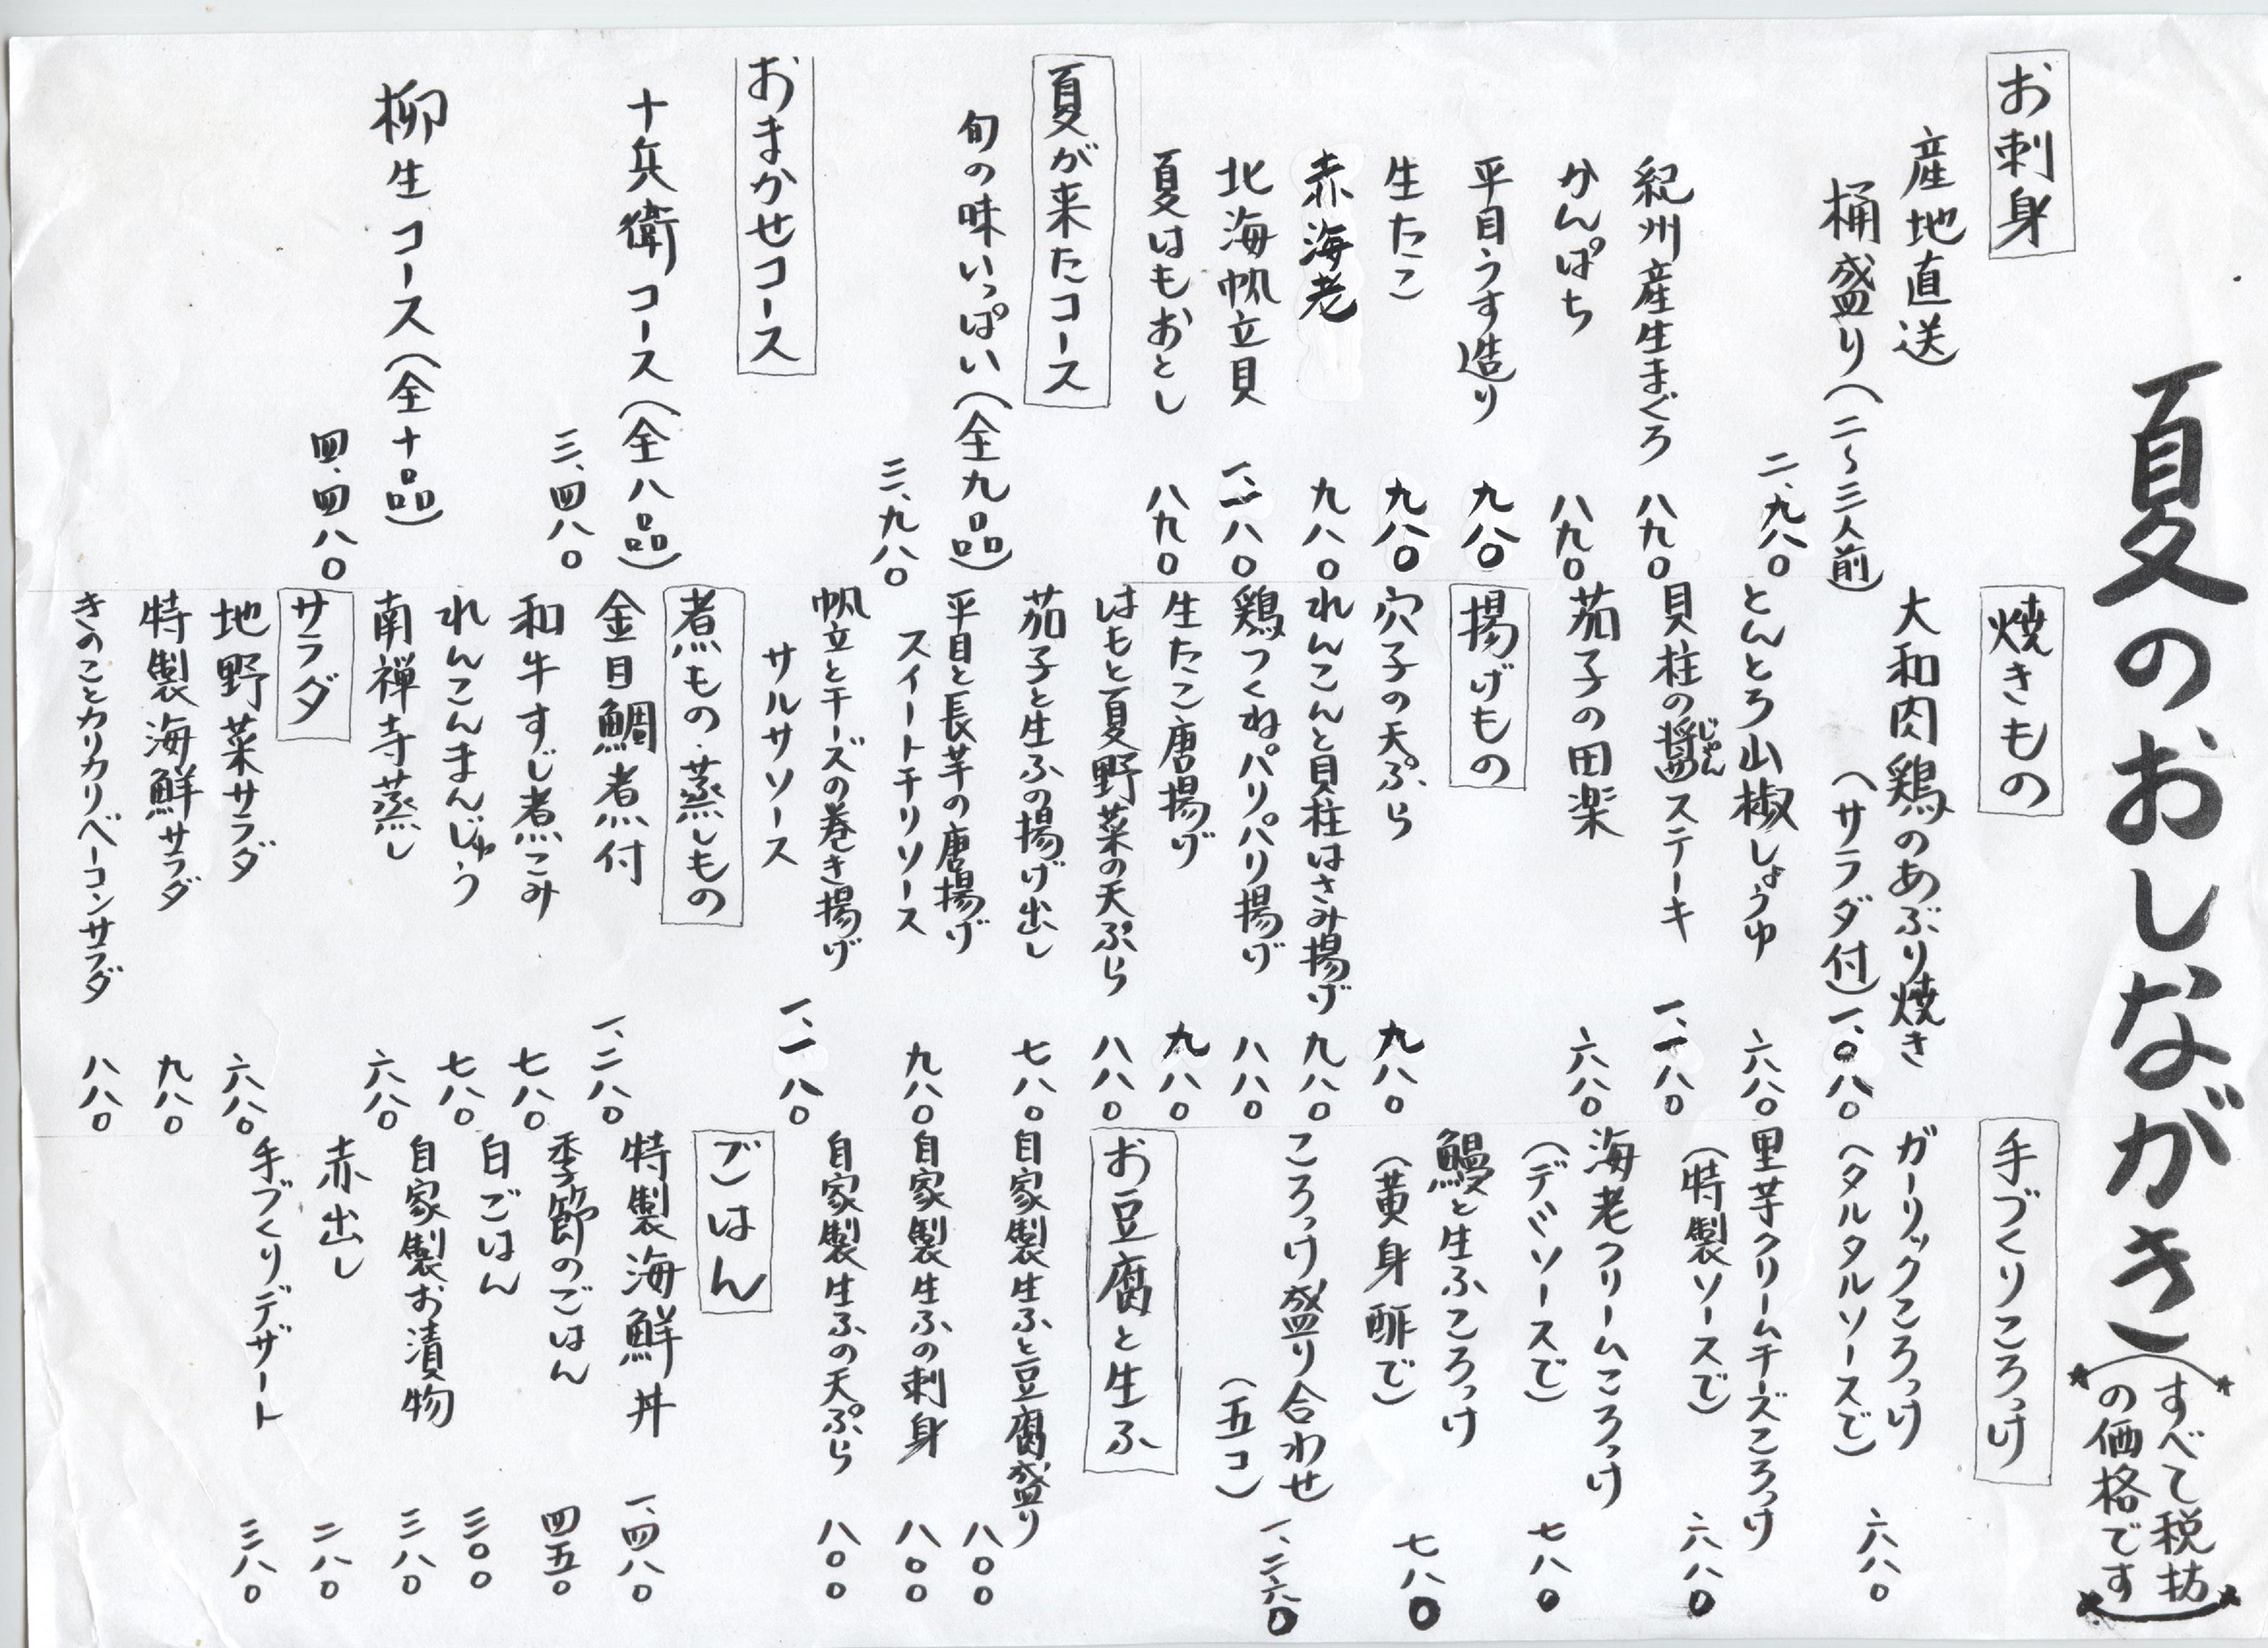 夏のおしながき
(すべて税抜
の価格です)
お刺身
産地直送
桶盛り(二〜三人前)
二、九八〇
紀州産生まぐろ 八九〇
かんぱち 八九〇
平目うす造り 九八〇
生たこ 九八〇
赤海老 九八〇
北海帆立貝 一、一八〇
夏はもおとし 八九〇
夏が来たコース
旬の味いっぱい(全九品)
三、九八〇
おまかせコース
十兵衛コース(全八品)
三、四八〇
柳生コース(全十品)
四、四八〇
焼きもの
大和肉鶏のあぶり焼き
(サラダ付) 一、〇八〇
とんとろ山椒しょうゆ 六八〇
貝柱の醬じゃんステーキ 一、一八〇
茄子の田楽 六八〇
揚げもの
穴子の天ぷら 九八〇
れんこんと貝柱はさみ揚げ 九八〇
鶏つくねパリパリ揚げ 八八〇
生たこ唐揚げ 九八〇
はもと夏野菜の天ぷら 八八〇
茄子と生ふの揚げ出し 七八〇
平目と長芋の唐揚げ
スイートチリソース 九八〇
帆立とチーズの巻き揚げ
サルサソース 一、一八〇
煮もの・蒸しもの
金目鯛煮付 一、二八〇
和牛すじ煮こみ 七八〇
れんこんまんじゅう 七八〇
南禅寺蒸し 六八〇
サラダ
地野菜サラダ 六八〇
特製海鮮サラダ 九八〇
きのことカリカリベーコンサラダ 八八〇
手づくりころっけ
ガーリックころっけ
(タルタルソースで) 六八〇
里芋クリームチーズころっけ
(特製ソースで) 六八〇
海老クリームころっけ
(デミソースで) 七八〇
鰻と生ふころっけ
(黄身酢で) 七八〇
ころっけ盛り合わせ
(五コ) 一、二六〇
お豆腐と生ふ
自家製生ふと豆腐盛り 八〇〇
自家製生ふの刺身 八〇〇
自家製生ふの天ぷら 八〇〇
ごはん
特製海鮮丼 一、四八〇
季節のごはん 四五〇
白ごはん 三〇〇
自家製お漬物 三八〇
赤出し 二八〇
手づくりデザート 三八〇